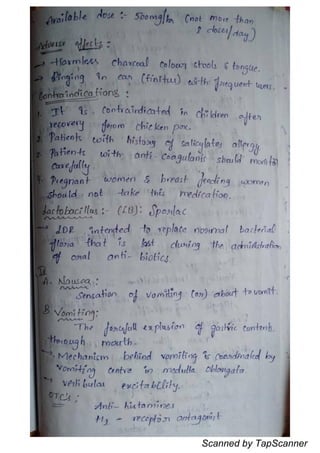 Available dose :- 500mg/hr (not more than
8 doses/day)
Adverse effects :
→ Harmless charcoal colour stools & tongue.
→ Ringing in ear (tinitus) with frequent uses.
Contraindications :
1. It is contraindicated in children after
recovery from chicken pox.
2. Patients with history of salicylates allergy
3. Patients with anti-coagulants should monitor
carefully.
4. Pregnant women & breast feeding women
should not take this medication.
Lactobacillus :- (LB): Sporlac
→ intended to replace normal bacterial
flora that is lost during the administration
of oral anti-biotics.
A. Nausea :
Sensation of vomiting (or) about to vomit.
B. Vomiting:
The forcefull explusion of gastric contents
through mouth.
→ Mechanism behind vomiting is coordinated by
vomiting centre in medulla oblongata.
→ vestibular excitability.
OTC's :
Anti-histamines
H1 - receptor antagonist
Scanned by TapScanner